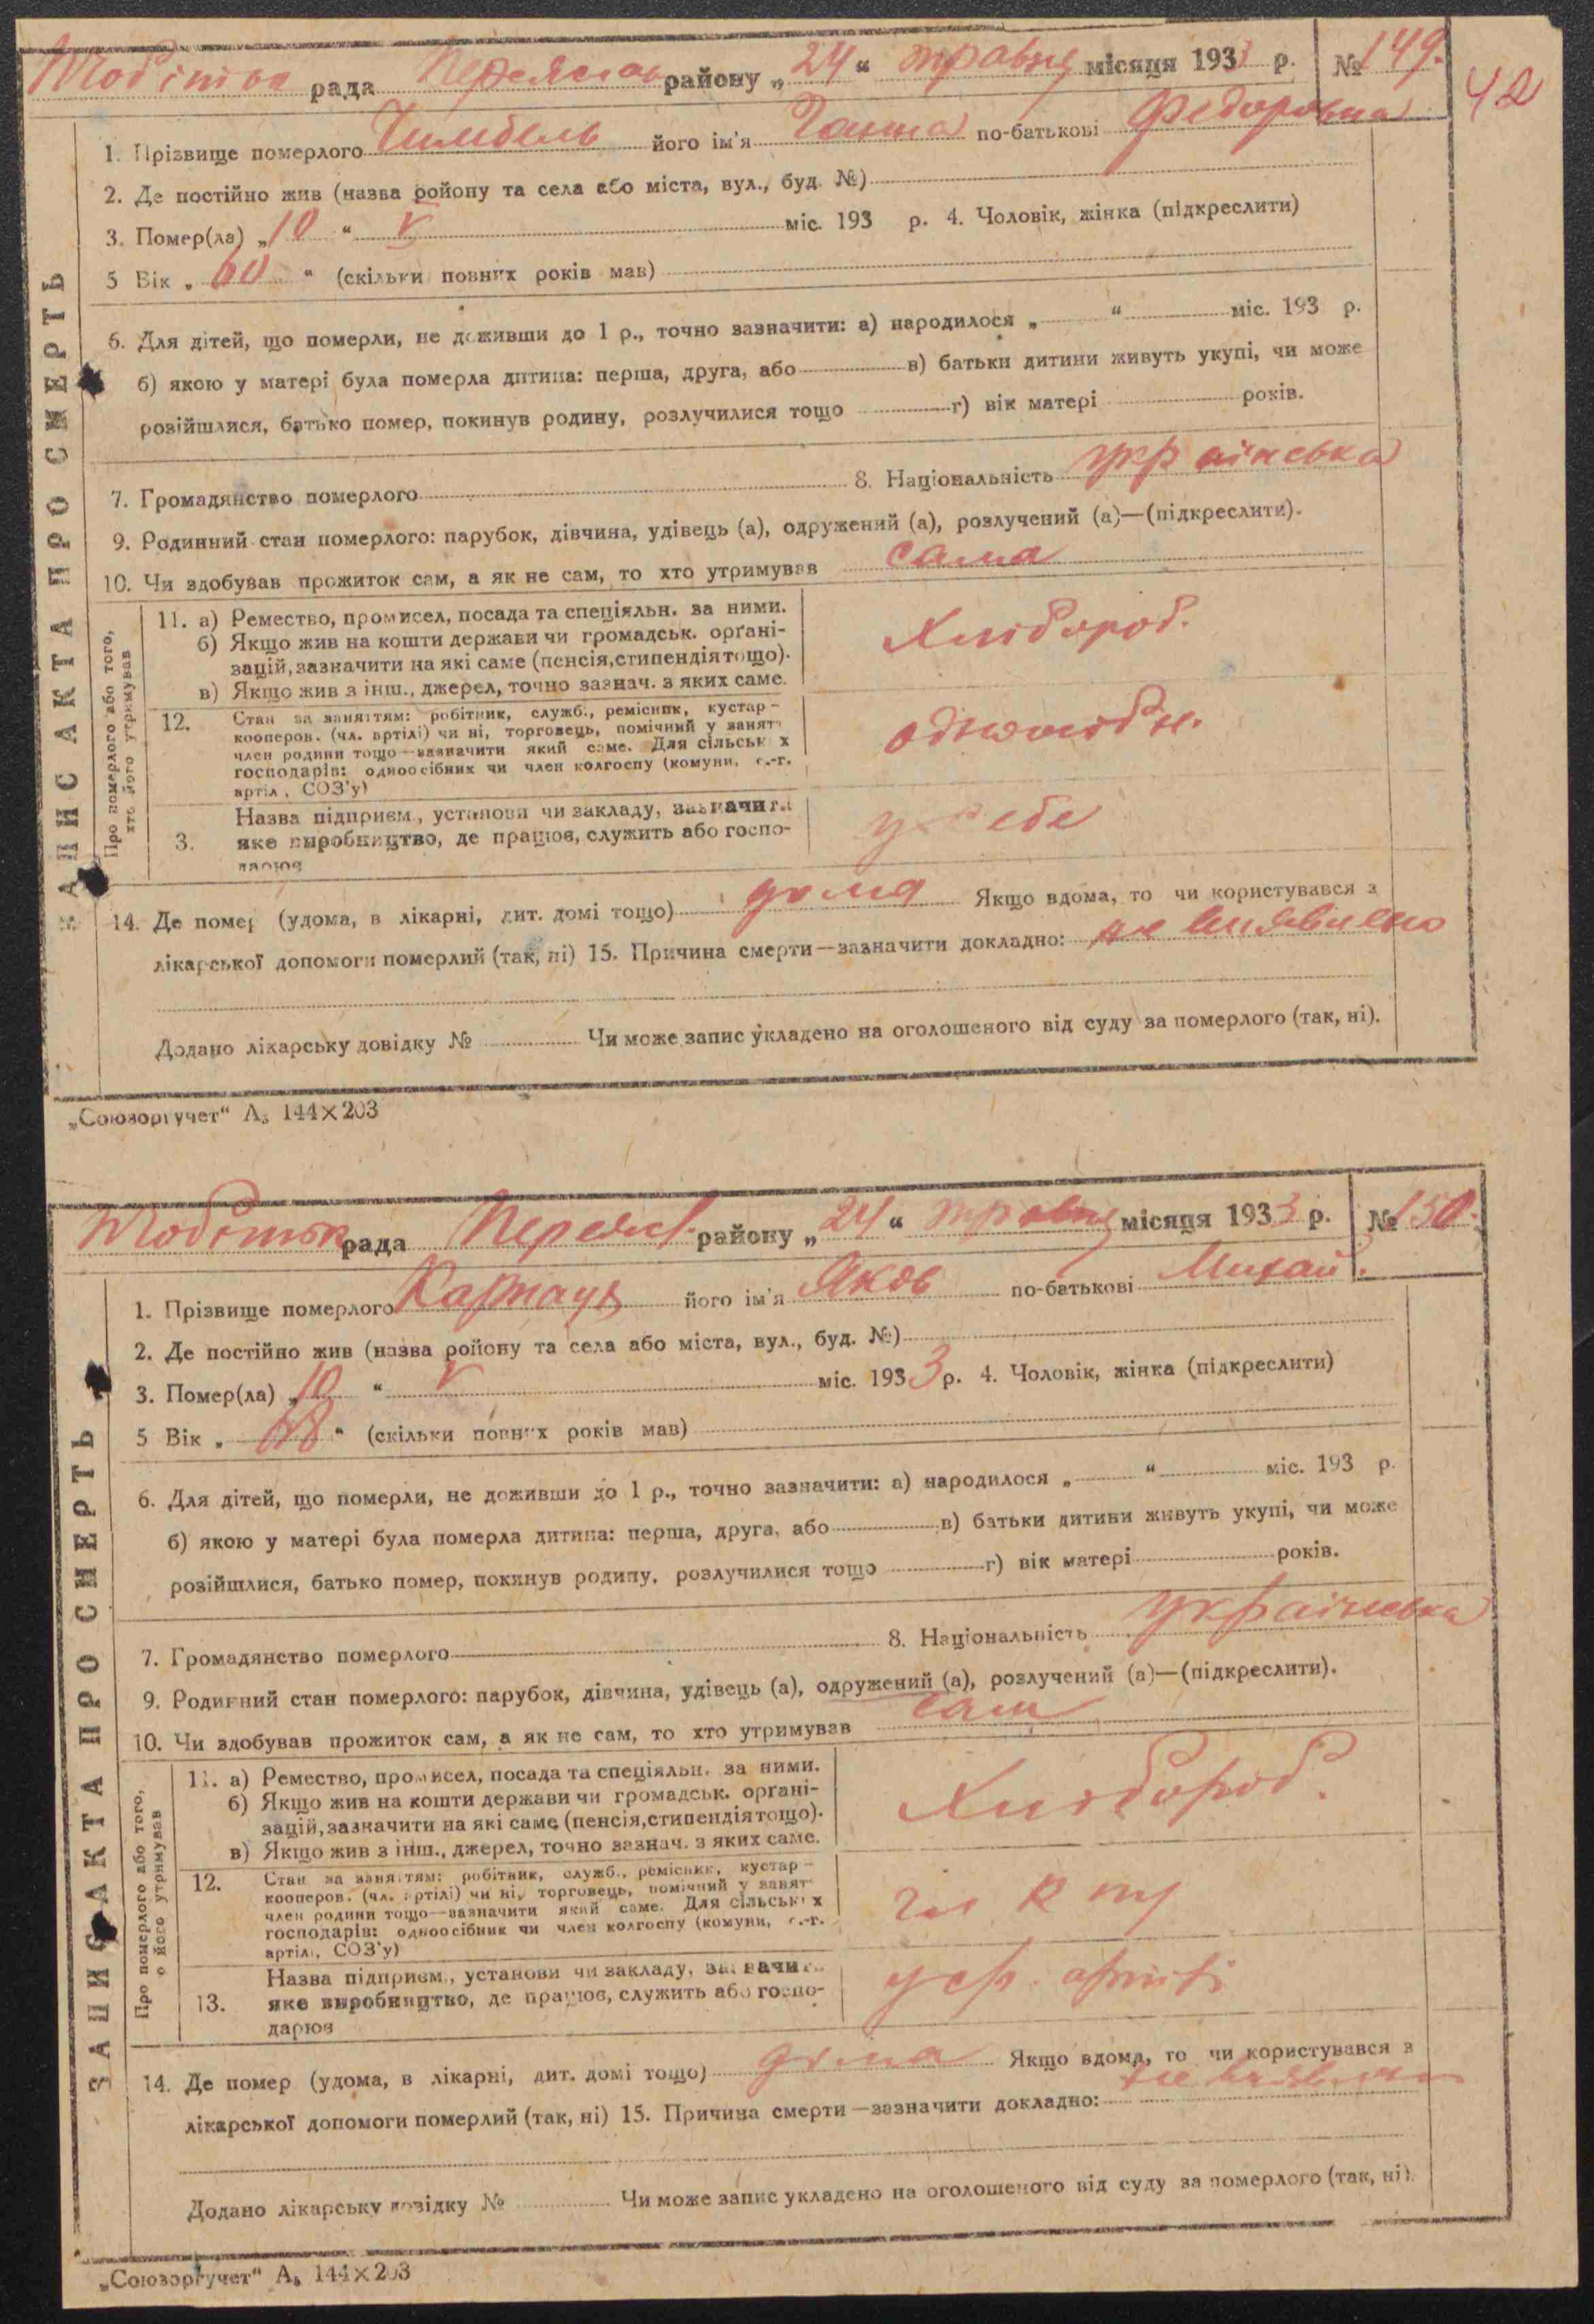 рада Переяслав району „24“ травня місяця 1933 р. № 149.
42
1. Прізвище померлого Чимбель його ім'я Ганна по-батькові Федоровна
2. Де постійно жив (назва ройону та села або міста, вул., буд. №)
3. Помер(ла) „10“ V міс. 193 р. 4. Чоловік, жінка (підкреслити)
5 Вік „60“ (скільки повних років мав)
6. Для дітей, що померли, не доживши до 1 р., точно зазначити: а) народилося „ “ міс. 193 р.
б) якою у матері була померла дитина: перша, друга, або в) батьки дитини живуть укупі, чи може
розійшлися, батько помер, покинув родину, розлучилися тощо г) вік матері років.
7. Громадянство померлого 8. Національність українська
9. Родинний стан померлого: парубок, дівчина, удівець (а), одружений (а), розлучений (а)—(підкреслити).
10. Чи здобував прожиток сам, а як не сам, то хто утримував сама
ЗАПИС АКТА ПРО СМЕРТЬ
Про померлого або того,
хто його утримував
11. а) Ремество, промисел, посада та спеціяльн. за ними.
б) Якщо жив на кошти держави чи громадськ. орґані-
зацій, зазначити на які саме (пенсія, стипендія тощо).
в) Якщо жив з інш., джерел, точно зазнач. з яких саме.
Хлібороб.
12. Стан за заняттям: робітник, служб., ремісник, кустар –
кооперов. (чл. артілі) чи ні, торговець, помічний у занятт
член родини тощо—зазначити який саме. Для сільськ х
господарів: одноосібник чи член колгоспу (комуни, с.-г.
артіл , СОЗ'у)
одноосібн.
3. Назва підприєм., установи чи закладу, зазначити
яке виробництво, де працює, служить або госпо-
дарює
у себе
14. Де помер (удома, в лікарні, дит. домі тощо) дома Якщо вдома, то чи користувався з
лікарської допомоги померлий (так, ні) 15. Причина смерти—зазначити докладно: не виявлено
Додано лікарську довідку № Чи може запис укладено на оголошеного від суду за померлого (так, ні).
„Союзоргучет“ А₅ 144×203
рада Переясл. району „24“ травня місяця 1933 р. № 150.
1. Прізвище померлого його ім'я Яков по-батькові Михай.
2. Де постійно жив (назва ройону та села або міста, вул., буд. №)
3. Помер(ла) „10“ V міс. 1933 р. 4. Чоловік, жінка (підкреслити)
5 Вік „68“ (скільки повних років мав)
6. Для дітей, що померли, не доживши до 1 р., точно зазначити: а) народилося „ “ міс. 193 р.
б) якою у матері була померла дитина: перша, друга, або в) батьки дитини живуть укупі, чи може
розійшлися, батько помер, покинув родину, розлучилися тощо г) вік матері років.
7. Громадянство померлого 8. Національність українська
9. Родинний стан померлого: парубок, дівчина, удівець (а), одружений (а), розлучений (а)—(підкреслити).
10. Чи здобував прожиток сам, а як не сам, то хто утримував сам
ЗАПИС АКТА ПРО СМЕРТЬ
Про померлого або того,
о його утримував
11. а) Ремество, промисел, посада та спеціяльн. за ними.
б) Якщо жив на кошти держави чи громадськ. орґані-
зацій, зазначити на які саме (пенсія, стипендія тощо).
в) Якщо жив з інш., джерел, точно зазнач. з яких саме.
Хлібороб.
12. Стан за заняттям: робітник, служб., ремісник, кустар –
кооперов. (чл. артілі) чи ні, торговець, помічний у занят
член родини тощо—зазначити який саме. Для сільськ х
господарів: одноосібник чи член колгоспу (комуни, с.-г.
артіл , СОЗ'у)
13. Назва підприєм., установи чи закладу, зазначить
яке виробництво, де працює, служить або госпо-
дарює
артілі
14. Де помер (удома, в лікарні, дит. домі тощо) дома Якщо вдома, то чи користувався з
лікарської допомоги померлий (так, ні) 15. Причина смерти—зазначити докладно: не виявлен
Додано лікарську довідку № Чи може запис укладено на оголошеного від суду за померлого (так, ні).
„Союзоргучет“ А₅ 144×203